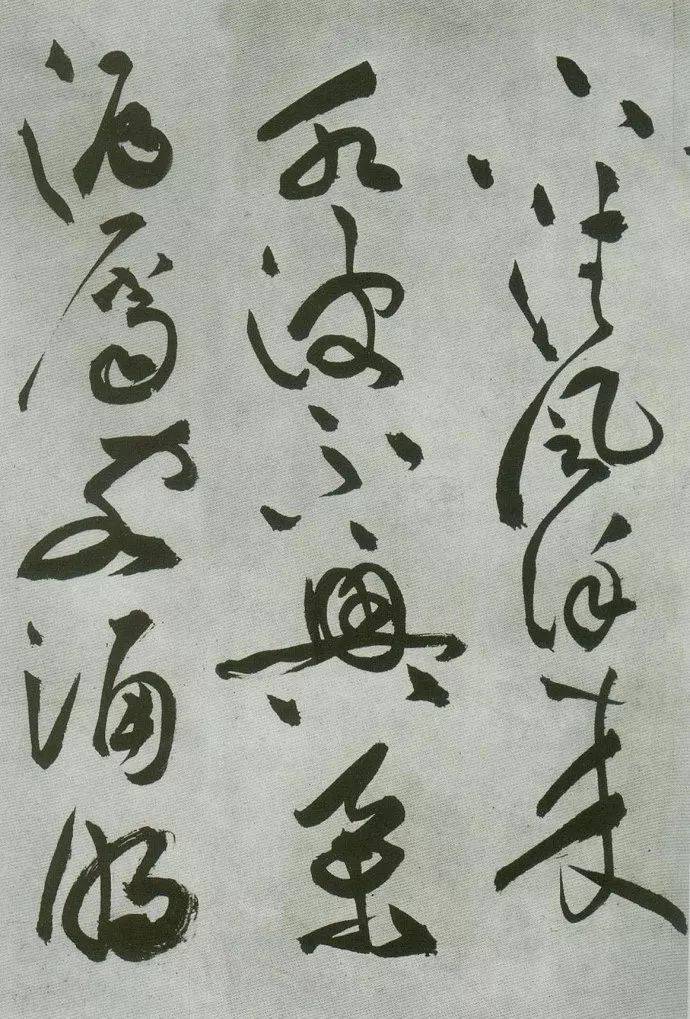 下清風徐來
水波不興舉
酒屬客誦明